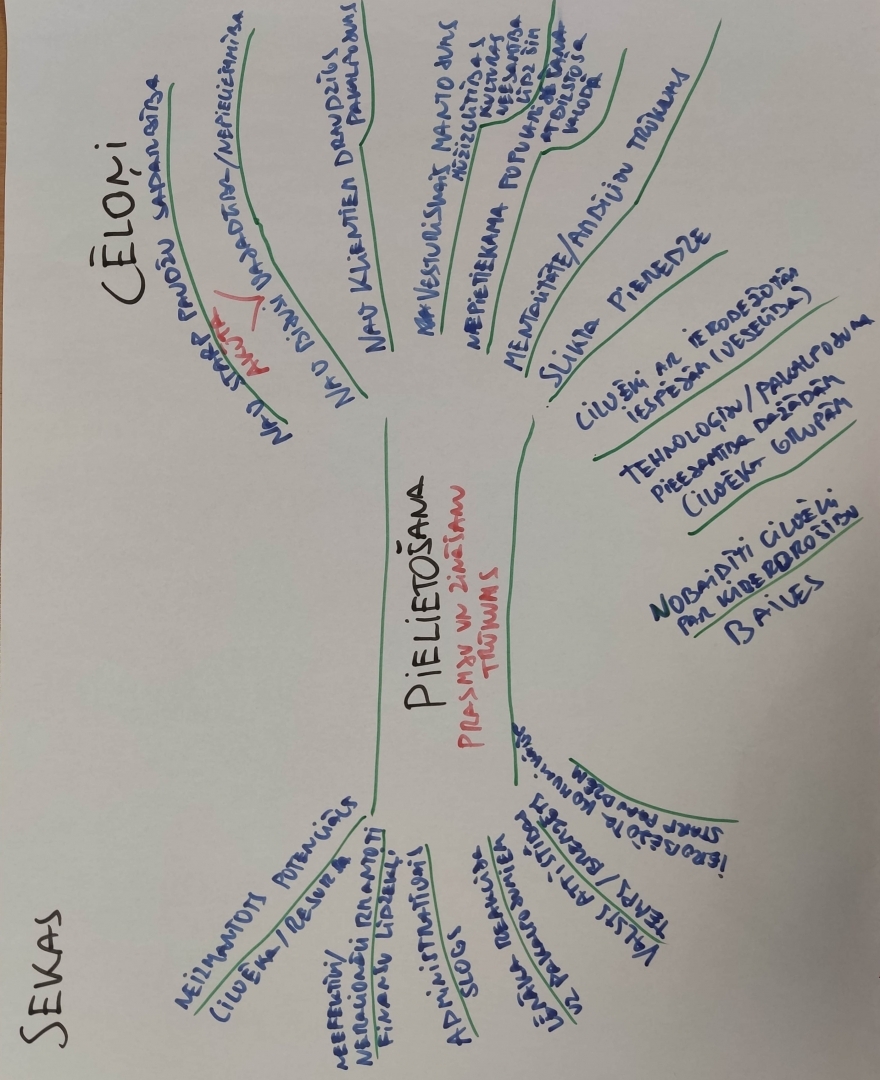 CĒLOŅI
NAV STARP PAUDŽU SADARBĪBA
AKŪTA
NAV BIJUSI VAJADZĪBA/NEPIECIEŠAMĪBA
NAV KLIENTIEM DRAUDZĪGS
PAKALPOJUMS
VĒSTURISKAIS MANTOJUMS
MŪŽIZGLĪTĪBAS
KULTŪRAS
NEESAMĪBA
LĪDZ ŠIM
NEPIETIEKAMA POPULARIZĒŠANA
ATBILSTOŠĀ
VALODĀ
MENTALITĀTE/AMBĪCIJU TRŪKUMS
SLIKTA PIEREDZE
CILVĒKI AR IEROBEŽOTĀM
IESPĒJĀM (VESELĪBA)
TEHNOLOĢIJU/PAKALPOJUMA
PIEEJAMĪBA DAŽĀDĀM
CILVĒKU GRUPĀM
NOBAIDĪTI CILVĒKI
PAR KIBERDROŠĪBU
BAILES
PIELIETOŠANA
PRASMJU UN ZINĀŠANU
TRŪKUMS
SEKAS
NEIZMANTOTS POTENCIĀLS
CILVĒKA/RESURSA
NEEFEKTĪVI/
NERACIONĀLI IZMANTOTI
FINANŠU LĪDZEKĻI
ADMINISTRATĪVAIS
SLOGS
LĒNĀKA REAKCIJA
UZ PAKALPOJUMIEM
VALSTS ATTĪSTĪBAS
TEMPS/BREMZĒTS
IEROBEŽOTA KOMUNIKĀCIJA
STARP PAAUDZĒM